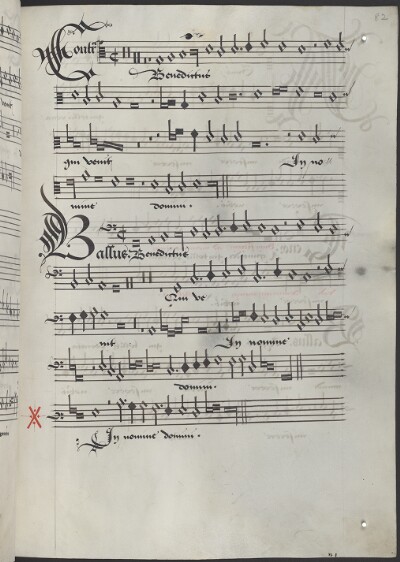 82
Contra
Benedictus
qui venit In no
mine domini.
Bassus. Benedictus
Qui ve
nit In nomine
domini.
In nomine domini.